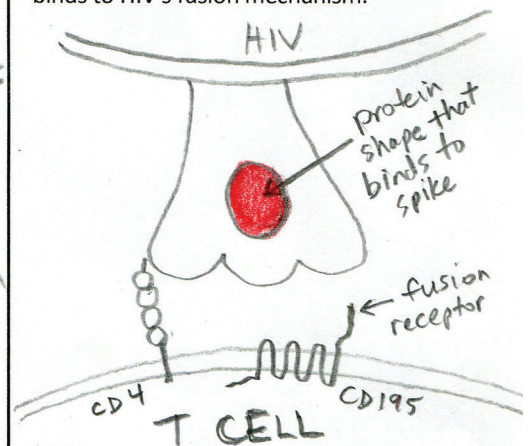 binds to HIV's fusion mechanism.
HIV
protein
shape that
binds to
spike
fusion
receptor
CD4
CD195
T CELL